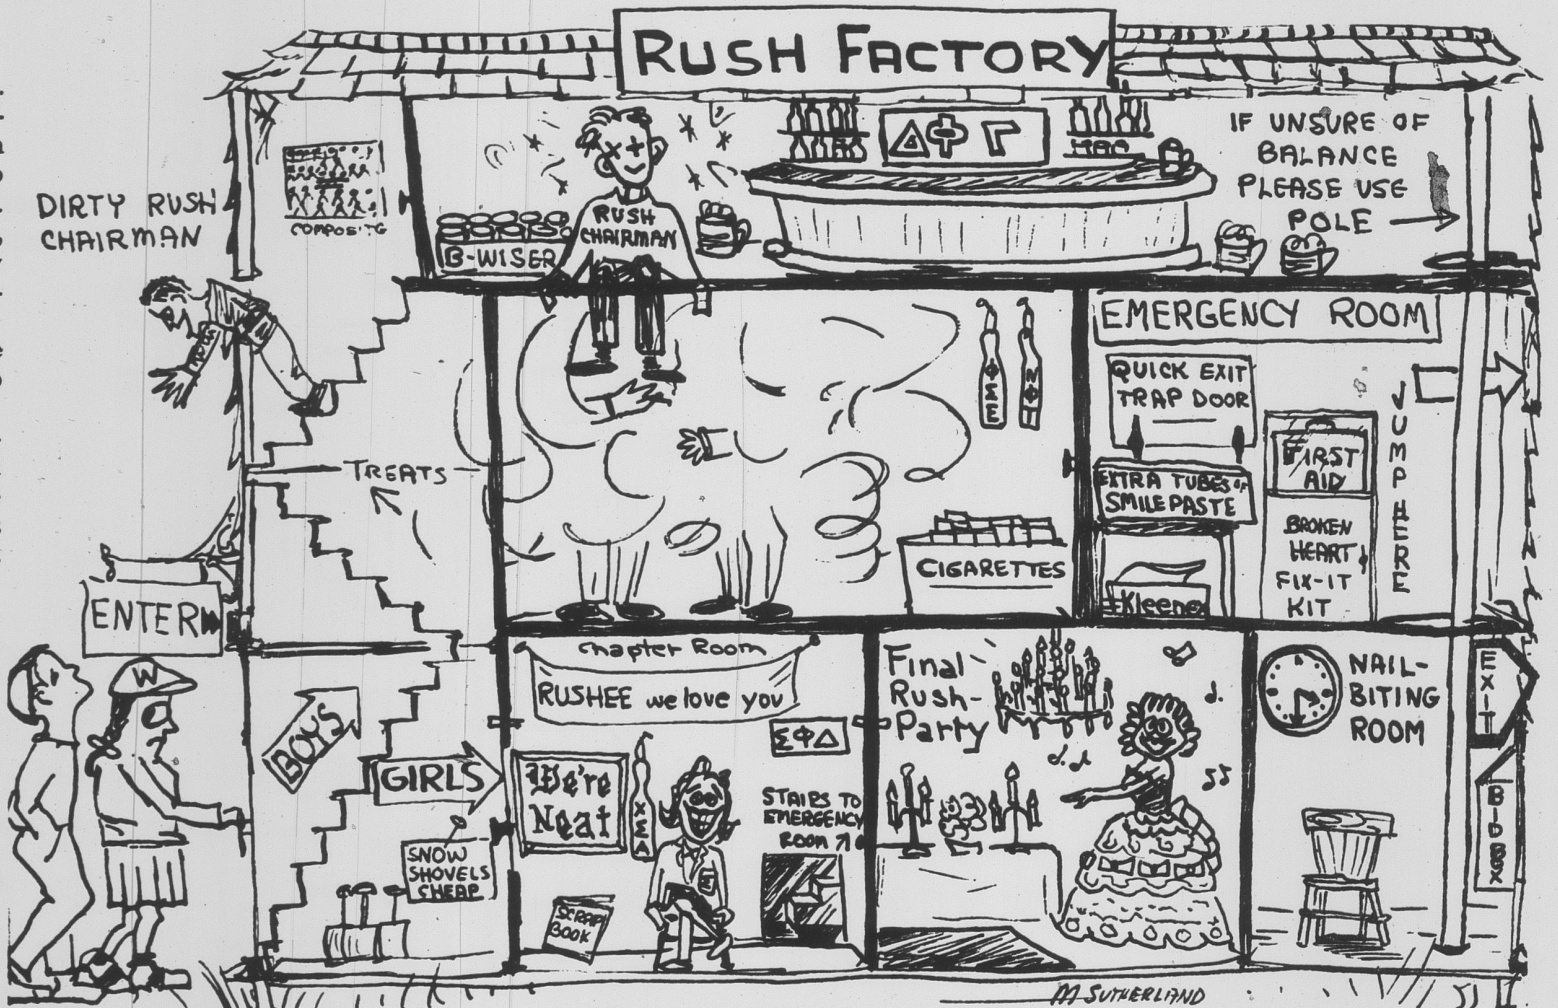 RUSH FACTORY
DIRTY RUSH
CHAIRMAN
COMPOSITE
B-WISER
RUSH
CHAIRMAN
ΔΦΓ
IF UNSURE OF
BALANCE
PLEASE USE
POLE
TREATS
ΦΣΕ
CIGARETTES
EMERGENCY ROOM
QUICK EXIT
TRAP DOOR
EXTRA TUBES OF
SMILE PASTE
Kleenex
FIRST
AID
BROKEN
HEART
FIX-IT
KIT
JUMP HERE
ENTER
W
BOYS
GIRLS
SNOW
SHOVELS
CHEAP
Chapter Room
RUSHEE we love you
We're
Neat
ΧΣΑ
ΣΦΔ
STAIRS TO
EMERGENCY
ROOM
SCRAP
BOOK
Final
Rush-
Party
NAIL-
BITING
ROOM
EXIT
BID BOX
M SUTHERLAND